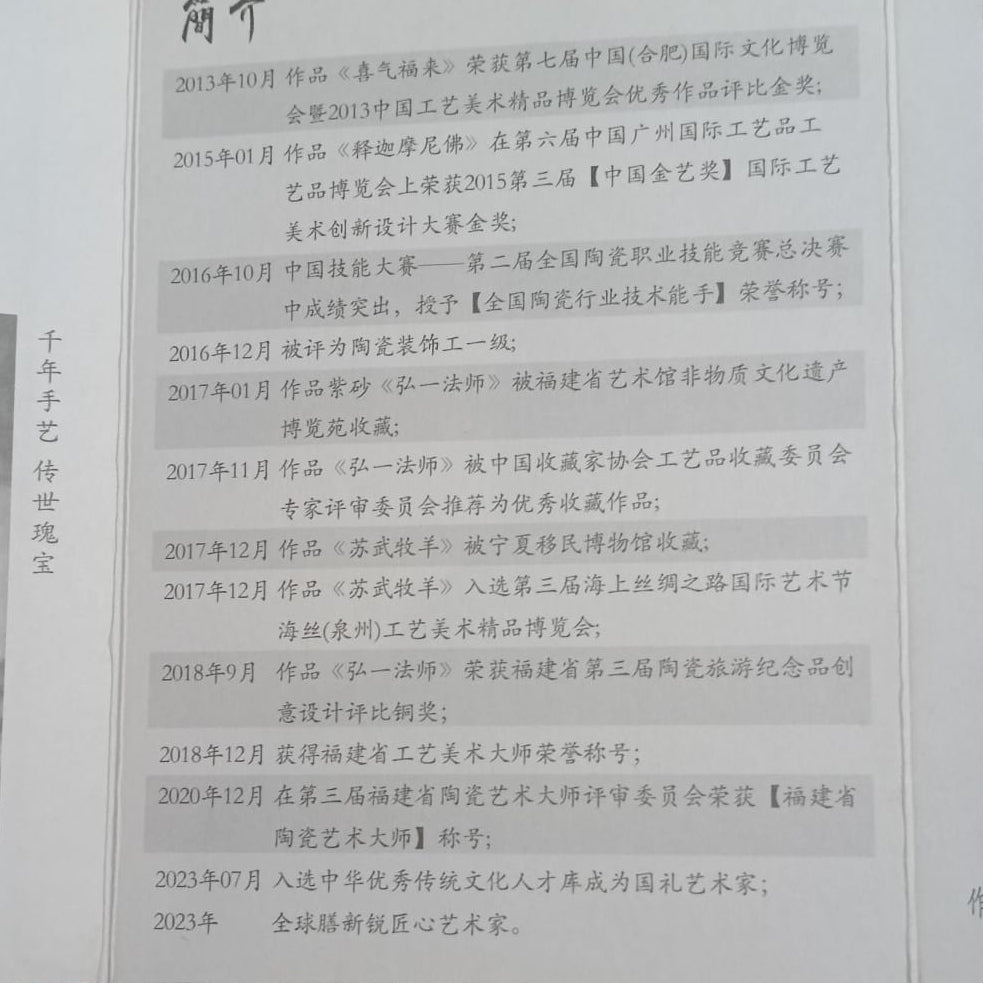 簡介
2013年10月 作品《喜气福来》荣获第七届中国(合肥)国际文化博览
会暨2013中国工艺美术精品博览会优秀作品评比金奖;
2015年01月 作品《释迦摩尼佛》在第六届中国广州国际工艺品工
艺品博览会上荣获2015第三届【中国金艺奖】国际工艺
美术创新设计大赛金奖;
2016年10月 中国技能大赛——第二届全国陶瓷职业技能竞赛总决赛
中成绩突出，授予【全国陶瓷行业技术能手】荣誉称号；
2016年12月 被评为陶瓷装饰工一级;
2017年01月 作品紫砂《弘一法师》被福建省艺术馆非物质文化遗产
博览苑收藏;
2017年11月 作品《弘一法师》被中国收藏家协会工艺品收藏委员会
专家评审委员会推荐为优秀收藏作品;
2017年12月 作品《苏武牧羊》被宁夏移民博物馆收藏;
2017年12月 作品《苏武牧羊》入选第三届海上丝绸之路国际艺术节
海丝(泉州)工艺美术精品博览会;
2018年9月 作品《弘一法师》荣获福建省第三届陶瓷旅游纪念品创
意设计评比铜奖；
2018年12月 获得福建省工艺美术大师荣誉称号；
2020年12月 在第三届福建省陶瓷艺术大师评审委员会荣获【福建省
陶瓷艺术大师】称号;
2023年07月 入选中华优秀传统文化人才库成为国礼艺术家；
2023年 全球膳新锐匠心艺术家。
千年手艺 传世瑰宝
作